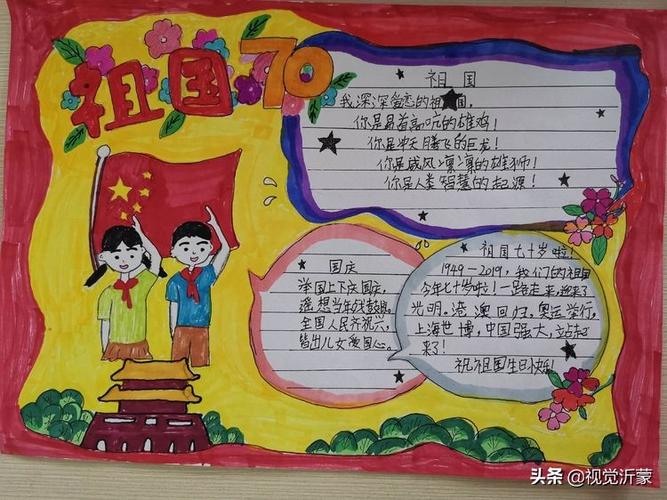 祖国70
祖国
我深深爱恋的祖国,
你是昂首高吭的雄鸡!
你是冲天腾飞的巨龙!
你是威风凛凛的雄狮!
你是人类智慧的起源!
国庆
举国上下庆国庆,
遥想当年战鼓
全国人民齐祝兴,
皆出儿女爱国心。
祖国七十岁啦!
1949-2019,我们的祖国
今年七十岁啦!一路走来,迎来了
光明。港澳回归。奥运举行,
上海世博,中国强大,立起
来了!
祝祖国生日快乐!
头条 @视觉沂蒙